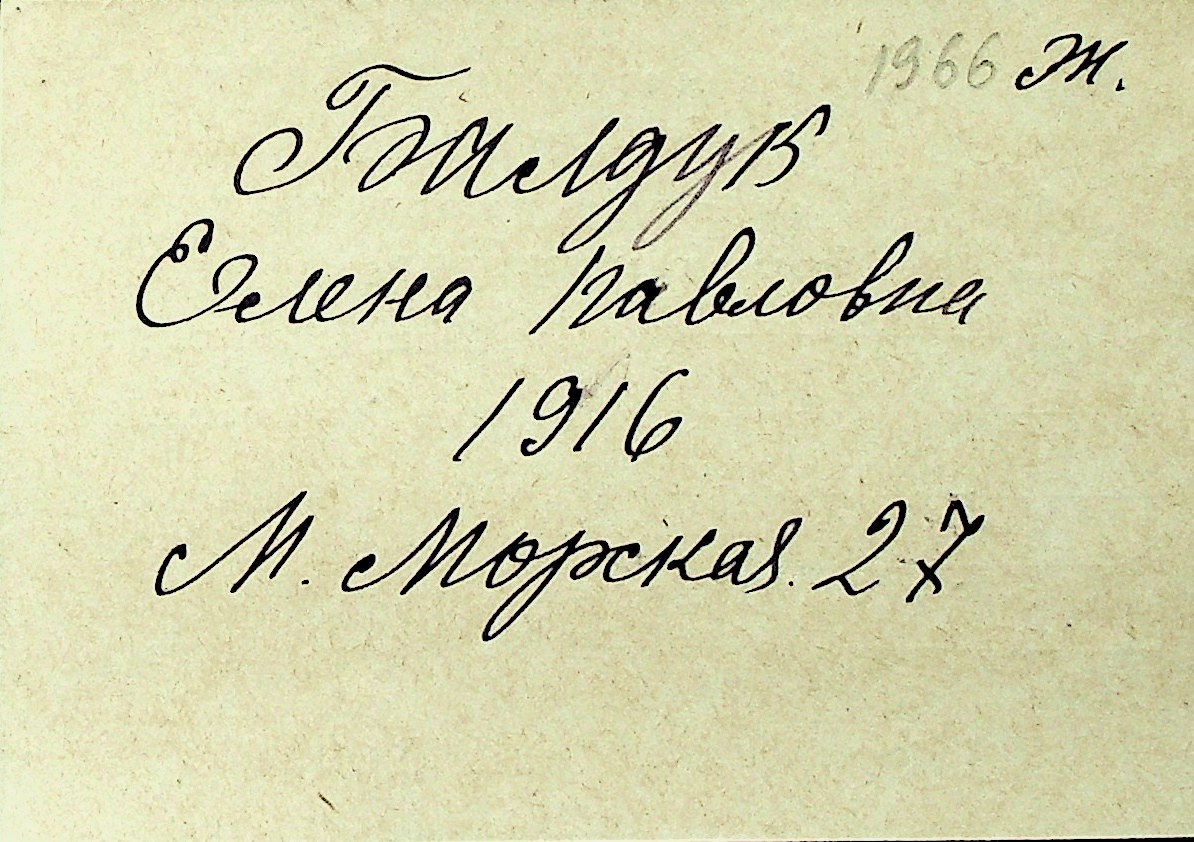 1966 ж.
Былдук
Елена Павловна
1916
М. Морская. 27